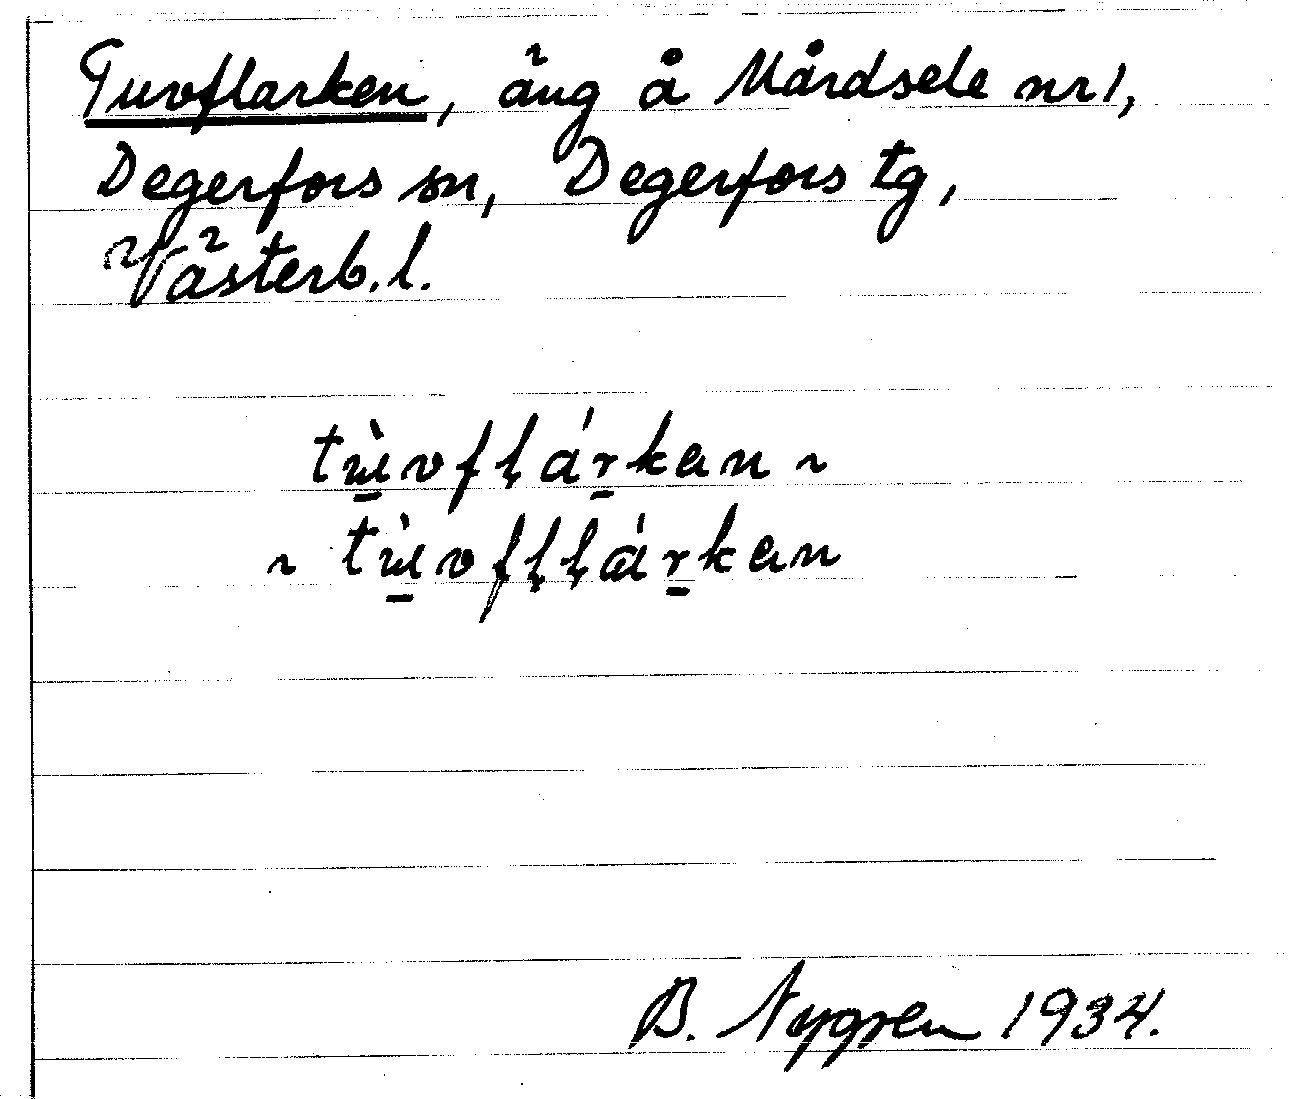 Tuvflarken, äng å Mårdsele nr 1,
Degerfors sn, Degerfors tg,
Västerb. l.
tɯ̱̀vfļáṟkən ~
~ tɯ̱̀vfļļáṟkən
B. Nygren 1934.